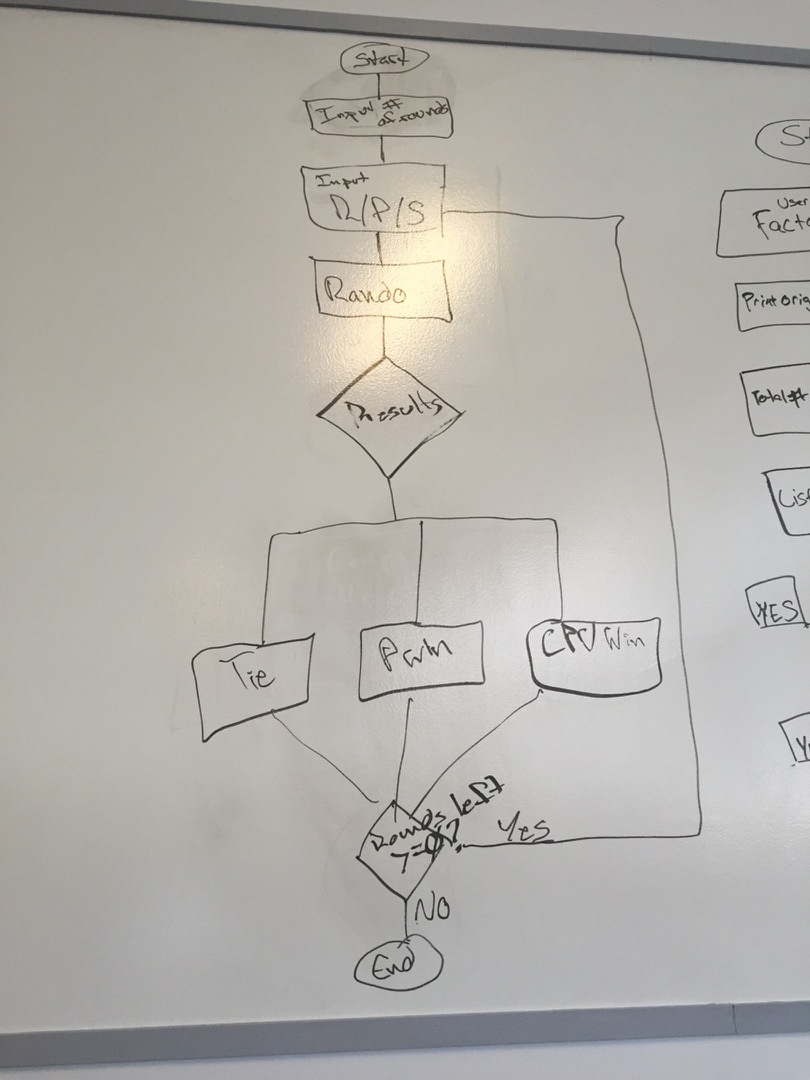 Start
Input #
of rounds
Input
R/P/S
Rando
Results
Tie
P win
CPU Win
Rounds left
Yes
NO
End
St
User
Facto
Print orig
Total #
Lis
YES
Y